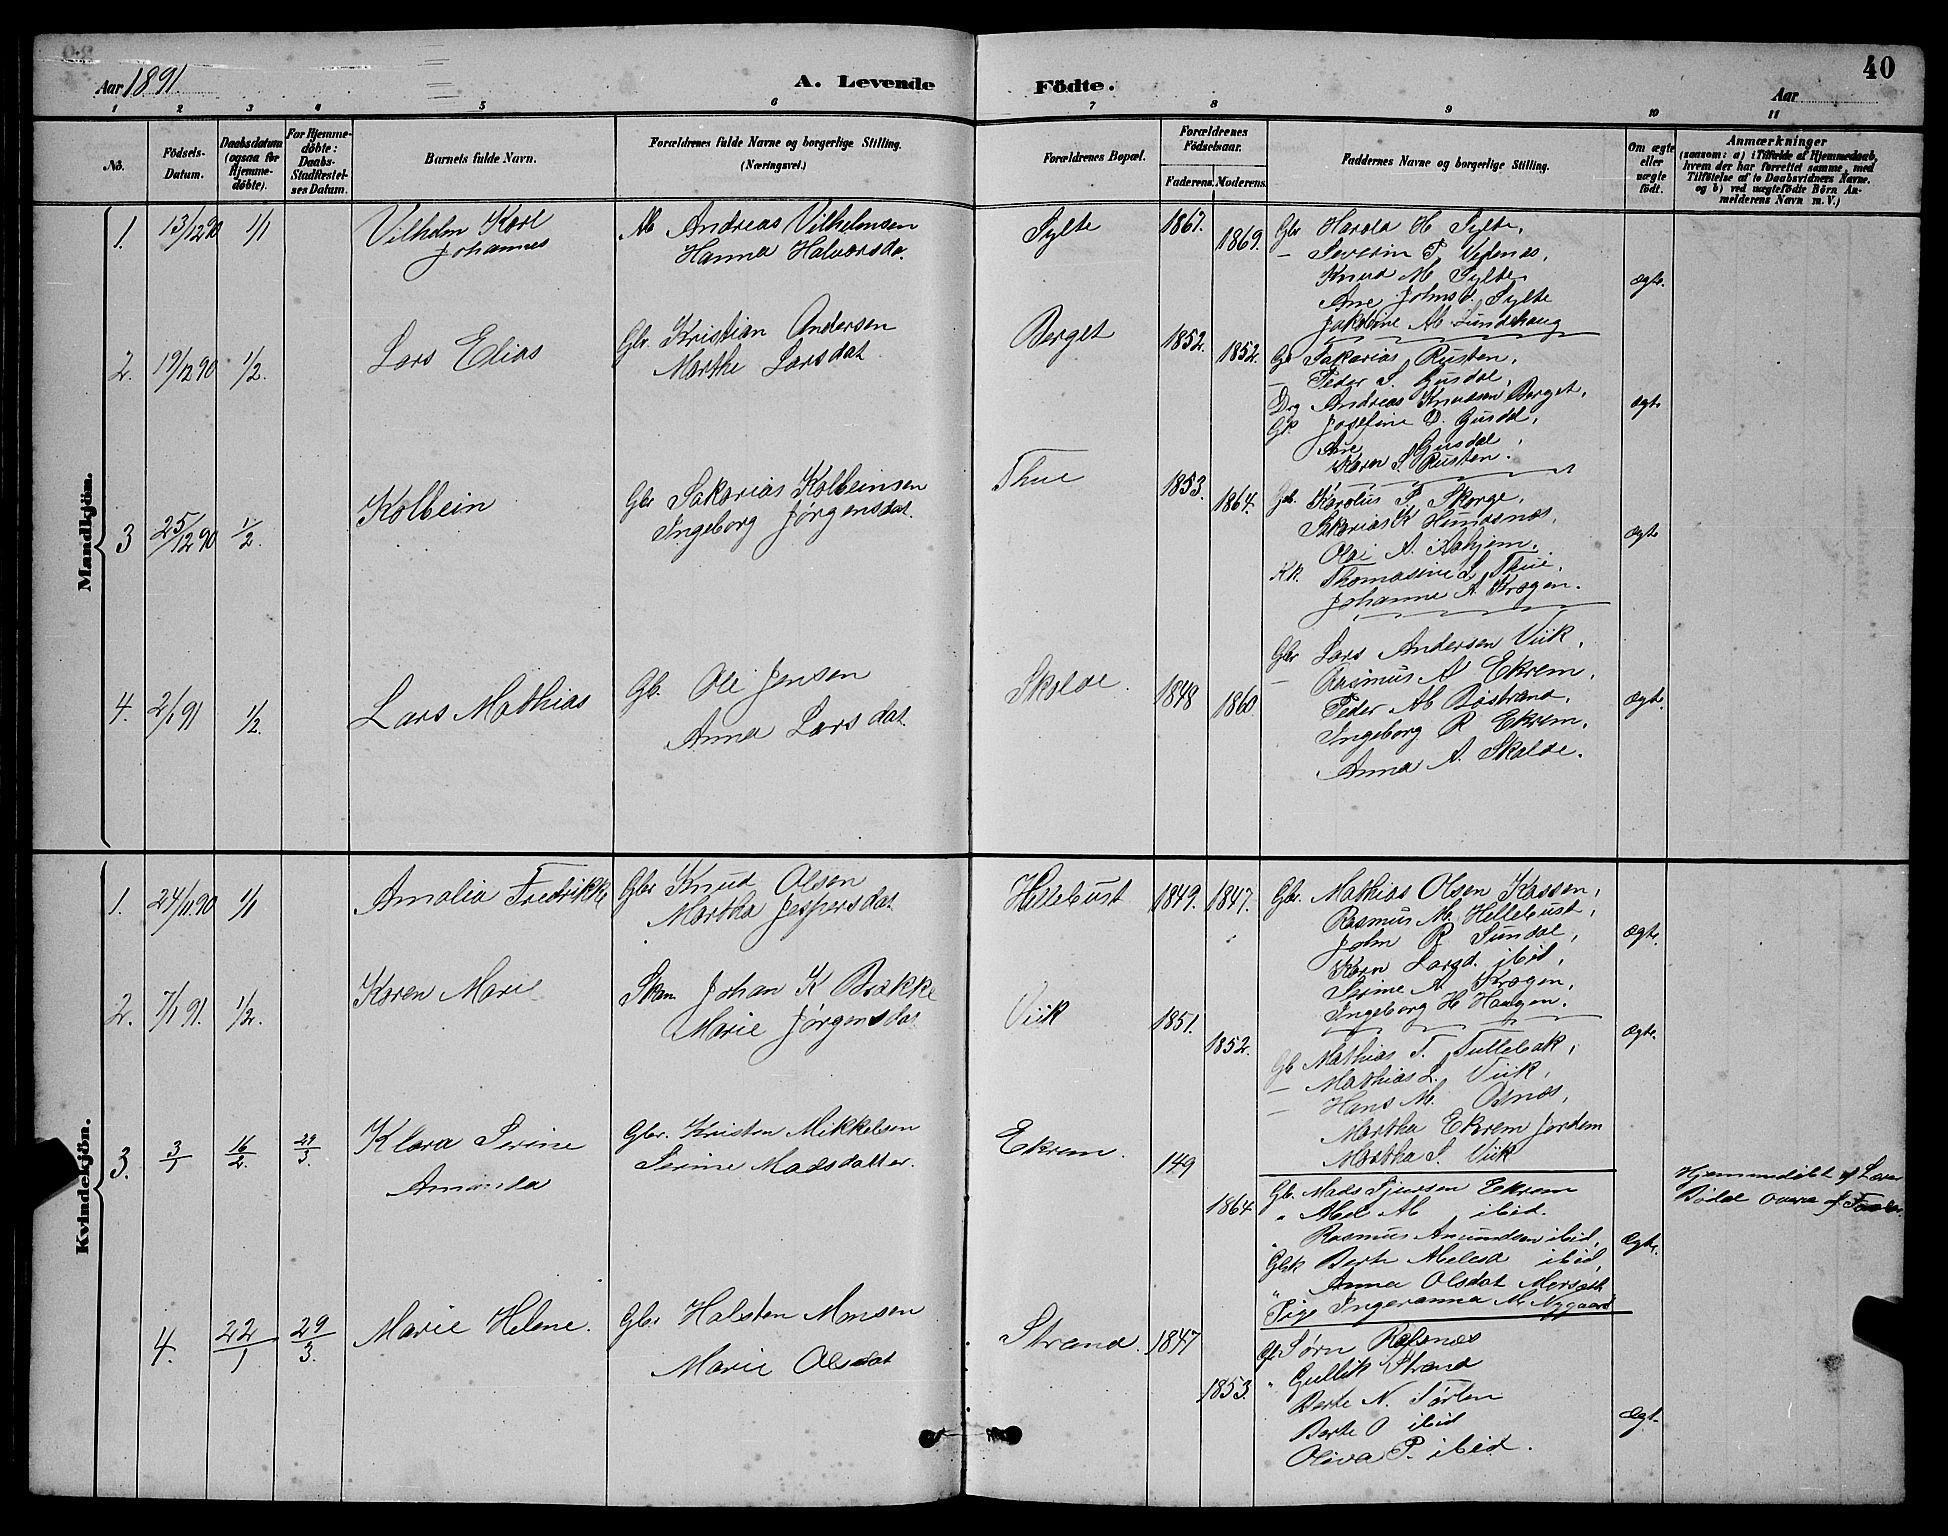 Aar 1891.
A. Levende Födte.
40
Aar
1 2 3 4 5 6 7 8 9 10 11
No.
Födsels-Datum.
Daabsdatum (ogsaa for Hjemmedöbte).
For Hjemmedöbte: Daabs-Stadfestelses Datum.
Barnets fulde Navn.
Forældrenes fulde Navne og borgerlige Stilling. (Næringsvei.)
Forældrenes Bopæl.
Forældrenes Födselsaar.
Faderens. Moderens.
Faddernes Navne og borgerlige Stilling.
Om ægte eller uægte födt.
Anmærkninger
(saasom: a) i Tilfælde af Hjemmedaab,
hvem der har forrettet samme, med
Tilföielse af to Daabsvidners Navne.
og b) ved uægtefödte Börn An-
melderens Navn m. V.)
Mandkjön.
1. 13/12 90 1/1
Vilhelm Karl
Johannes
Andreas Vilhelmsen
Hanna Halvorsda.
Sylte
1867. 1869.
Gbr Harold H Sylte,
— Severin T. Vefnes,
Knud M. Sylte,
Ane Johnsd. Sylte
Jakobine M. Lundehaug
ægte.
2. 19/12 90 1/2.
Lars Elias
Gbr. Kristian Andersen
Marthe Larsdat.
Berget
1852. 1852.
Gb Sakarias Rusten,
— Peder S. Gusdal,
Drg Andreas Knudsen Berget,
Gk Josefine D. Gusdal,
Ane Gusdal,
Karn S. Rusten.
ægte
3 25/12 90 1/2.
Kolbein
Gbr Sakarias Kolbeinsen
Ingeborg Jørgensdat.
Thue
1853. 1864.
Gb. Karolus P. Skorge,
Sakarias K Hundsnæs,
Olai A. Aahjem,
Kk. Thomasine L. Thue,
Johanne A. Kragen.
ægte
4. 2/1 91 1/2.
Lars Mathias
Gb. Ole Jensen
Anna Larsdat.
Skolde.
1848 1860.
Gbr Lars Andersen Viik,
— Rasmus A Ekrem,
Peder M Bøstrand,
Ingeborg R Ekrem,
Anna A. Skolde.
ægte.
Kvindekjön.
1. 24/11 90 1/1
Amalia Fredrikke
Gbr Knud Olsen
Martha Jespersdat.
Hellebust
1849. 1847.
Gbr. Mathias Olsen Kassen,
Rasmus M. Hellebust,
John R Sundal,
Karn Larsd. ibid,
Serine A Kragen,
Ingeborg H Haugen.
ægte.
2. 7/1 91. 1/2.
Karen Marie
Johan K Brakke
Marie Jørgensdat
Viik
1851. 1852.
Gb Mathias T. Tullebak,
— Mathias L. Viik,
— Hans M. Osnæs,
Martha Ekrem Jordem
Martha S. Viik
ægte.
3. 3/1 16/2. 29/3
Klara Serine
Amanda
Gbr. Kristen Mikkelsen
Serine Madsdatter.
Ekrem.
149 1864
Gb. Mads Sjursen Ekrem
" Abel M ibid.
" Rasmus Amundsen ibid,
Gbk Berte Abelsd ibid,
" Anna Olsdat Morsæth
Pige Ingeranna M. Nygaard
Ægte.
Hjemmedöbt af Lærer
Bödal
4. 22/1 29/3.
Marie Helene.
Gbr Halsten Monsen
Marie Olsdat
Strand.
1847 1853.
Gb Sørn Rafsnæs
" Gullik Strand
Berte N. Sørlen
Berte O ibid
Oliva P. ibid.
ægt.